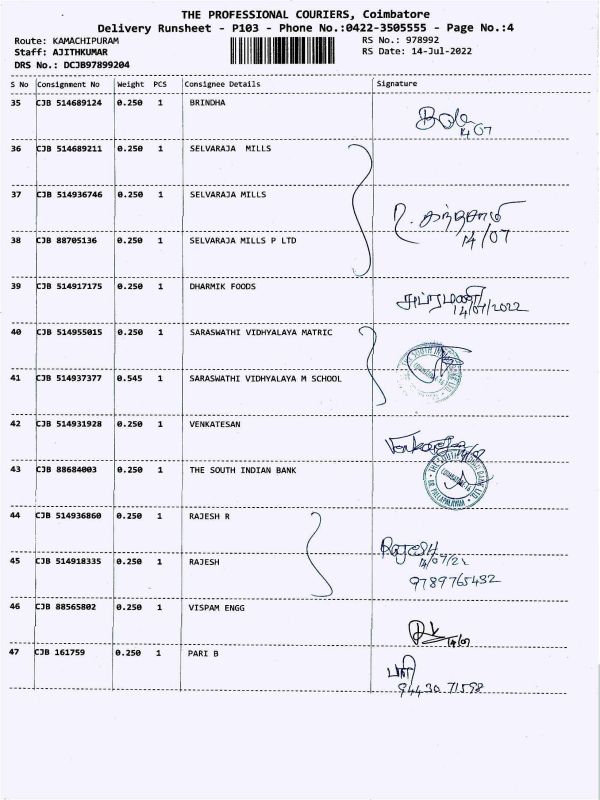 THE PROFESSIONAL COURIERS, Coimbatore
Delivery Runsheet - P103 - Phone No.:0422-3505555 - Page No.:4
Route: KAMACHIPURAM RS No.: 978992
Staff: AJITHKUMAR RS Date: 14-Jul-2022
DRS No.: DCJB97899204
S No Consignment No Weight PCS Consignee Details Signature
35 CJB 514689124 0.250 1 BRINDHA
14/07
36 CJB 514689211 0.250 1 SELVARAJA MILLS
37 CJB 514936746 0.250 1 SELVARAJA MILLS
14/07
38 CJB 88705136 0.250 1 SELVARAJA MILLS P LTD
39 CJB 514917175 0.250 1 DHARMIK FOODS
சுப்ரமணி
14/07/2022
40 CJB 514955015 0.250 1 SARASWATHI VIDHYALAYA MATRIC
41 CJB 514937377 0.545 1 SARASWATHI VIDHYALAYA M SCHOOL
42 CJB 514931928 0.250 1 VENKATESAN
43 CJB 88684003 0.250 1 THE SOUTH INDIAN BANK
44 CJB 514936860 0.250 1 RAJESH R
Rajesh
45 CJB 514918335 0.250 1 RAJESH
9789765432
46 CJB 88565802 0.250 1 VISPAM ENGG
14/07
47 CJB 161759 0.250 1 PARI B
பாரி
94430 71598